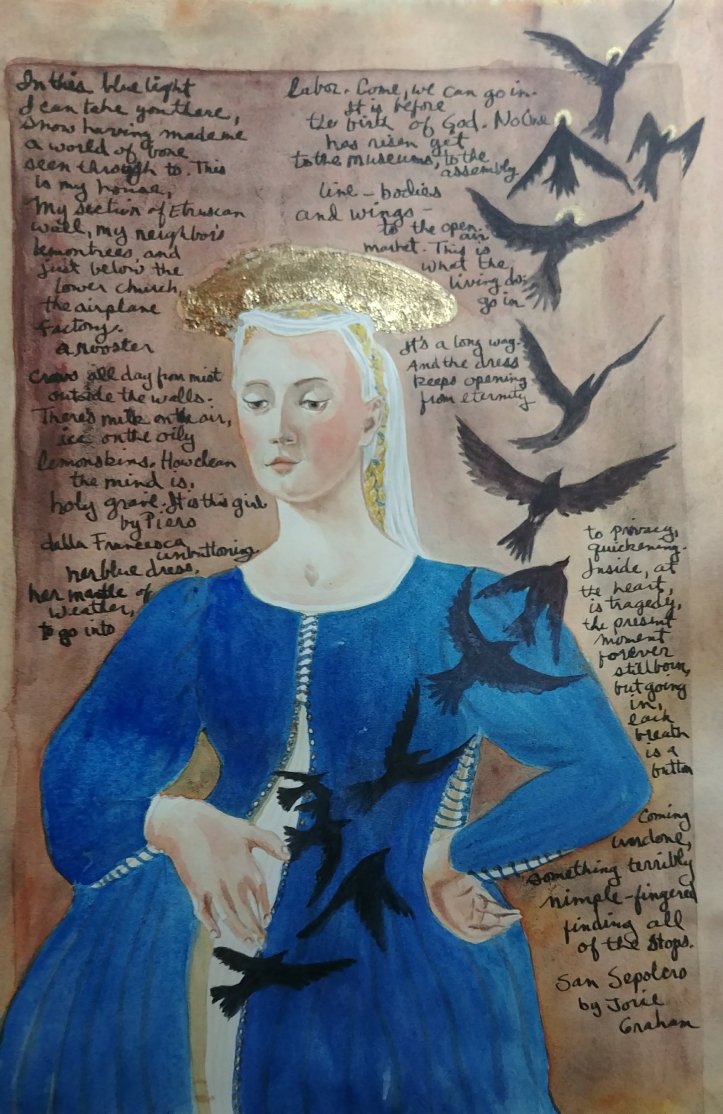 In this blue light
I can take you there,
snow having made me
a world of bone
seen through to. This
is my house,
My section of Etruscan
wall, my neighbor's
lemontrees, and
just below the
lower church,
the airplane
factory.
a rooster
crows all day from mist
outside the walls.
There's milk on the air,
ice on the oily
lemonskins. How clean
the mind is,
holy grave. It is this girl
by Piero
della Francesca
unbuttoning
her blue dress,
her mantle of
weather,
to go into
labor. Come, we can go in.
It is before
the birth of God. No One
has risen yet
to the museums, to the
assembly
line - bodies
and wings -
to the open air
market. This is
what the
living do:
go in
It's a long way.
And the dress
keeps opening
from eternity
to privacy,
quickening.
Inside, at
the heart,
is tragedy,
the present
moment
forever
stillborn,
but going
in,
each
breath
is a
button
Coming
undone,
something terribly
nimple-fingered
finding all
of the stops.
San Sepolcro
by Jorie
Graham